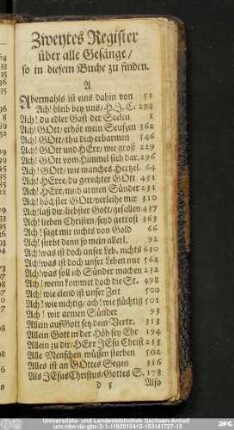 Zweytes Register
über alle Gesänge/
so in diesem Buche zu finden.
A
Abermahls ist eins dahin von 52
Ach! bleib bey uns/H.J.C. 294
Ach! du edler Gast der Seelen 1
Ach! GOtt/erhör mein Seufzen 362
Ach! GOtt/thu dich erbarmen 546
Ach! GOtt und HErr/wie groß 229
Ach! GOtt vom Himmel sieh dar. 296
Ach! GOtt/wie manches Hertzel. 64
Ach! HErre/du gerechter GOtt 431
Ach! HErr/mich armen Sünder 231
Ach! höchster GOtt/verleihe mir 310
Ach! laß dir liebster Gott/gefallen 437
Ach! lieben Christen/seyd getrost 563
Ach! sagt mir nichts von Gold 66
Ach! stirbt denn so mein allerl. 92
Ach! was ist doch unser Leb. nichts 630
Ach! was ist doch unser Leben nur 562
Ach! was soll ich Sünder machen 232
Ach! wenn kommet doch die St. 498
Ach! wie elend ist unser Zeit 500
Ach! wie nichtig/ach! wie flüchtig 501
Ach! wir armen Sünder 93
Allein auf Gott setz dein Vertr. 313
Allein Gott in der Höh sey Ehr 194
Allein zu dir/HErr JEsu Christ 233
Alle Menschen müssen sterben 502
Alles ist an GOttes Segen 316
Als JEsus Christus/Gottes S. 178
Also
Universitäts- und Landesbibliothek Sachsen-Anhalt